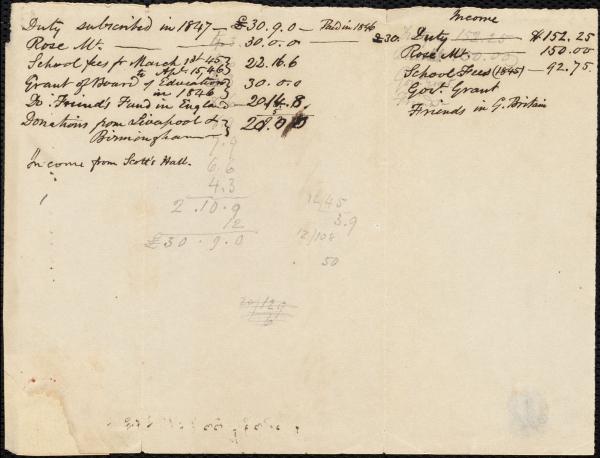 Duty subscribed in 1847 — £30.9.0 — Paid in 1846
Rose Mt. — 30.0.0 — £30.
School fees fr March 1st 45 } 22.16.6
to Apl. 15, 46 }
Grant of Board of Education } 30.0.0
in 1846 }
Do. Friend's Fund in England
Donations from Liverpool & }
Birmingham — }
Income from Scott's Hall.
7.9
6.6
4.3
2.10.9
12
£30.9.0
Income
Duty $152.25
Rose Mt. — 150.00
School Fees (1845) — 92.75
Govt. Grant
Friends in G. Britain
12/45
3.9
12/108
50